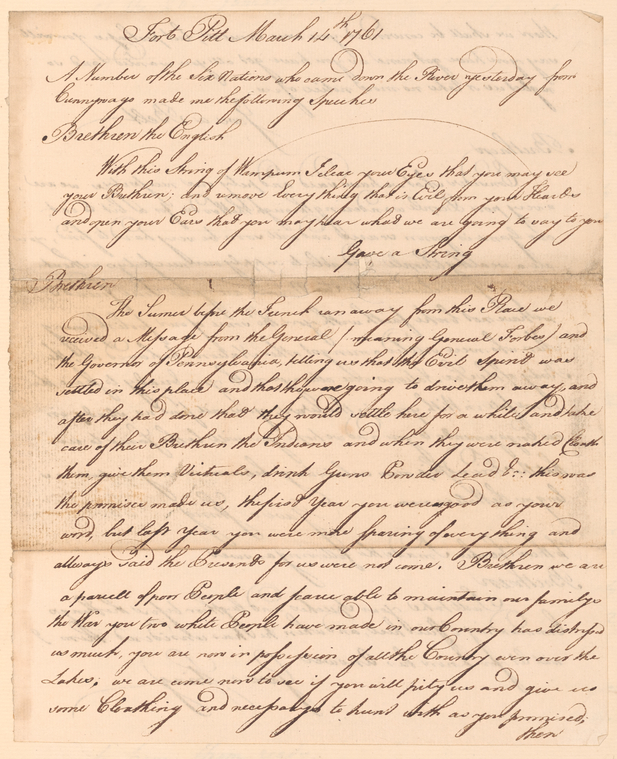 Fort Pitt March 14th 1761
A Number of the Six Nations who came down the River yesterday from
Cunnywago made me the following Speeches
Brethren the English
With this String of Wampum I clear your Eyes that you may see
your Brethren; and remove Every thing that is Evil from your Hearts
and open your Ears that you may hear what we are going to say to you
Gave a String
Brethren
The Sumer before the French ran away from this Place we
received a Message from the General (meaning General Forbes) and
the Governor of Pennsylvania, telling us that the Evil Spirit was
settled in this place and that they were going to drive them away, and
after they had done that they would settle here for a while, and take
care of their Brethren the Indians and when they were naked Cloath
them, give them Victuals, drink Guns Powder Lead &c: this was
the promises made us, the first Year you were good as your
word, but last Year you were more sparing of every thing and
allways said the Presents for us were not come. Brethren we are
a parcell of poor People and scarce able to maintain our familys
the War you two white People have made in our Country has distress'd
us much, you are now in possession of all the Country even over the
Lakes; we are come now to see if you will pity us and give us
some Cloathing and necessarys to hunt with as you promised;
then